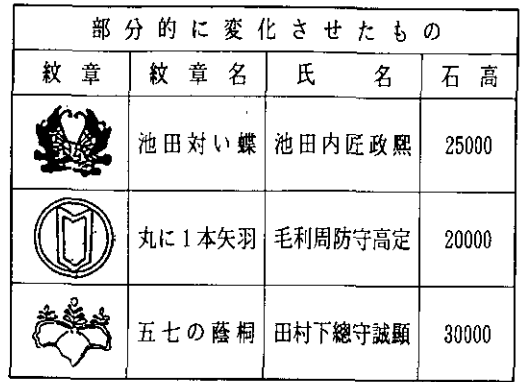 部分的に変化させたもの
紋章 紋章名 氏名 石高
池田対い蝶 池田内匠政熙 25000
丸に1本矢羽 毛利周防守高定 20000
五七の蔭桐 田村下總守誠顕 30000